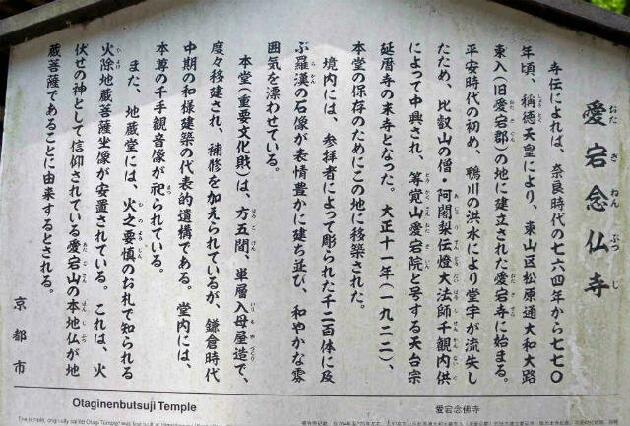 愛宕念仏寺
おたぎねんぶつじ
寺伝によれば、奈良時代の七六四年から七七〇
年頃、稱徳天皇により、東山区松原通大和大路
東入(旧愛宕郡)の地に建立された愛宕寺に始まる。
平安時代の初め、鴨川の洪水により堂宇が流失し
たため、比叡山の僧・阿闍梨伝燈大法師千観内供
によって中興され、等覚山愛宕院と号する天台宗
延暦寺の末寺となった。大正十一年(一九二二)、
本堂の保存のためにこの地に移築された。
境内には、参拝者によって彫られた千二百体に及
ぶ羅漢の石像が表情豊かに建ち並び、和やかな雰
囲気を漂わせている。
本堂(重要文化財)は、方五間、単層入母屋造で、
度々移建され、補修を加えられているが、鎌倉時代
中期の和様建築の代表的遺構である。堂内には、
本尊の千手観音像が祀られている。
また、地蔵堂には、火之要慎のお札で知られる
火除地蔵菩薩坐像が安置されている。これは、火
伏せの神として信仰されている愛宕山の本地仏が地
蔵菩薩であることに由来するとされる。
京都市
Otaginenbutsuji Temple
愛宕念佛寺